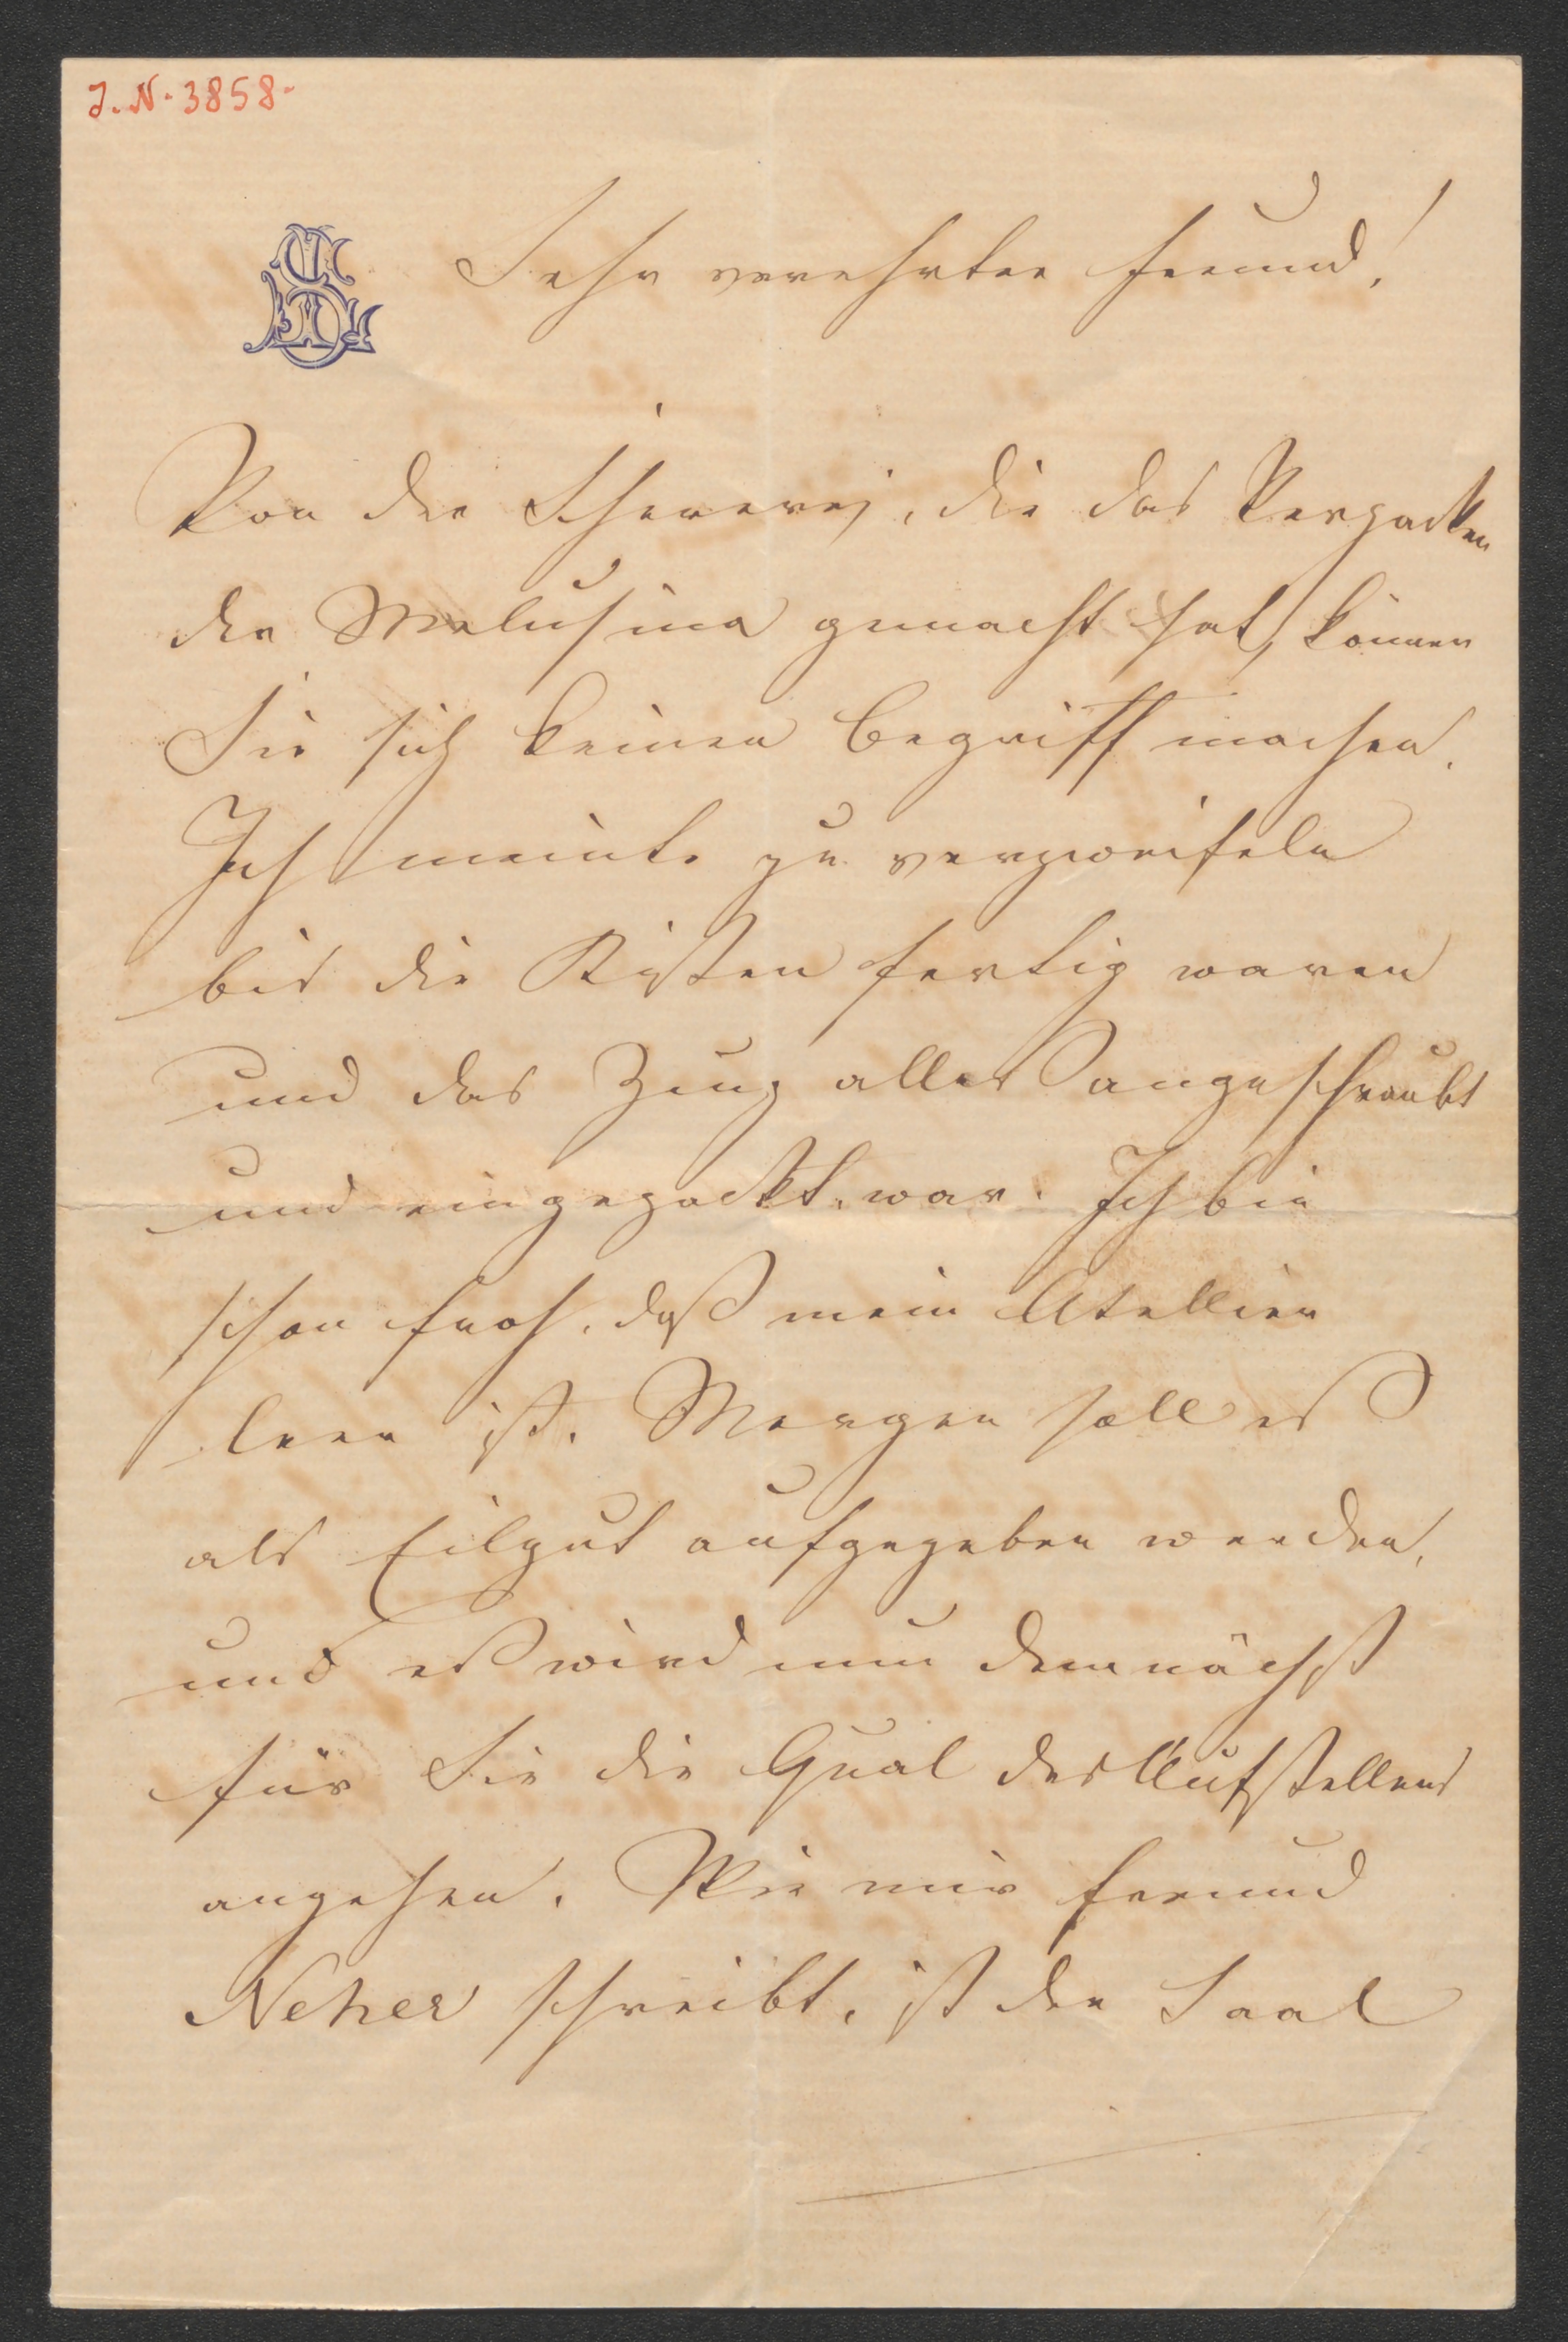 J. N. 3858.
Sehr verehrter Freund!
Von der Schererej, die das Verpacken
der Melusina gemacht hat, können
Sie sich keinen Begriff machen.
Ich meinte zu verzweifeln
bis die Kisten fertig waren
und das Zeug alles angeschraubt
und eingepackt war. Ich bin
schon froh, daß mein Atellier
leer ist. Morgen soll es
als Eilgut aufgegeben werden,
und es wird nun demnächst
für Sie die Qual des Aufstellens
angehen. Wie mir Freund
Neher schreibt, ist der Saal